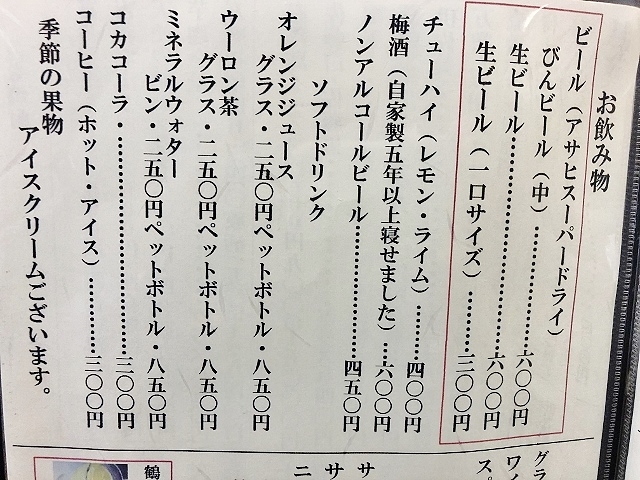 お飲み物
ビール（アサヒスーパードライ）
びんビール（中）………六〇〇円
生ビール………………六〇〇円
生ビール（一口サイズ）……三〇〇円
チューハイ（レモン・ライム）……四〇〇円
梅酒（自家製五年以上寝せました）…六〇〇円
ノンアルコールビール…………四五〇円
ソフトドリンク
オレンジジュース
グラス・二五〇円ペットボトル・八五〇円
ウーロン茶
グラス・二五〇円ペットボトル・八五〇円
ミネラルウォター
ビン・二五〇円ペットボトル・八五〇円
コカコーラ・………………………三〇〇円
コーヒー（ホット・アイス）………三〇〇円
季節の果物
アイスクリームございます。
グラ
ワイ
スパ
サ
サ
ニ
鶴